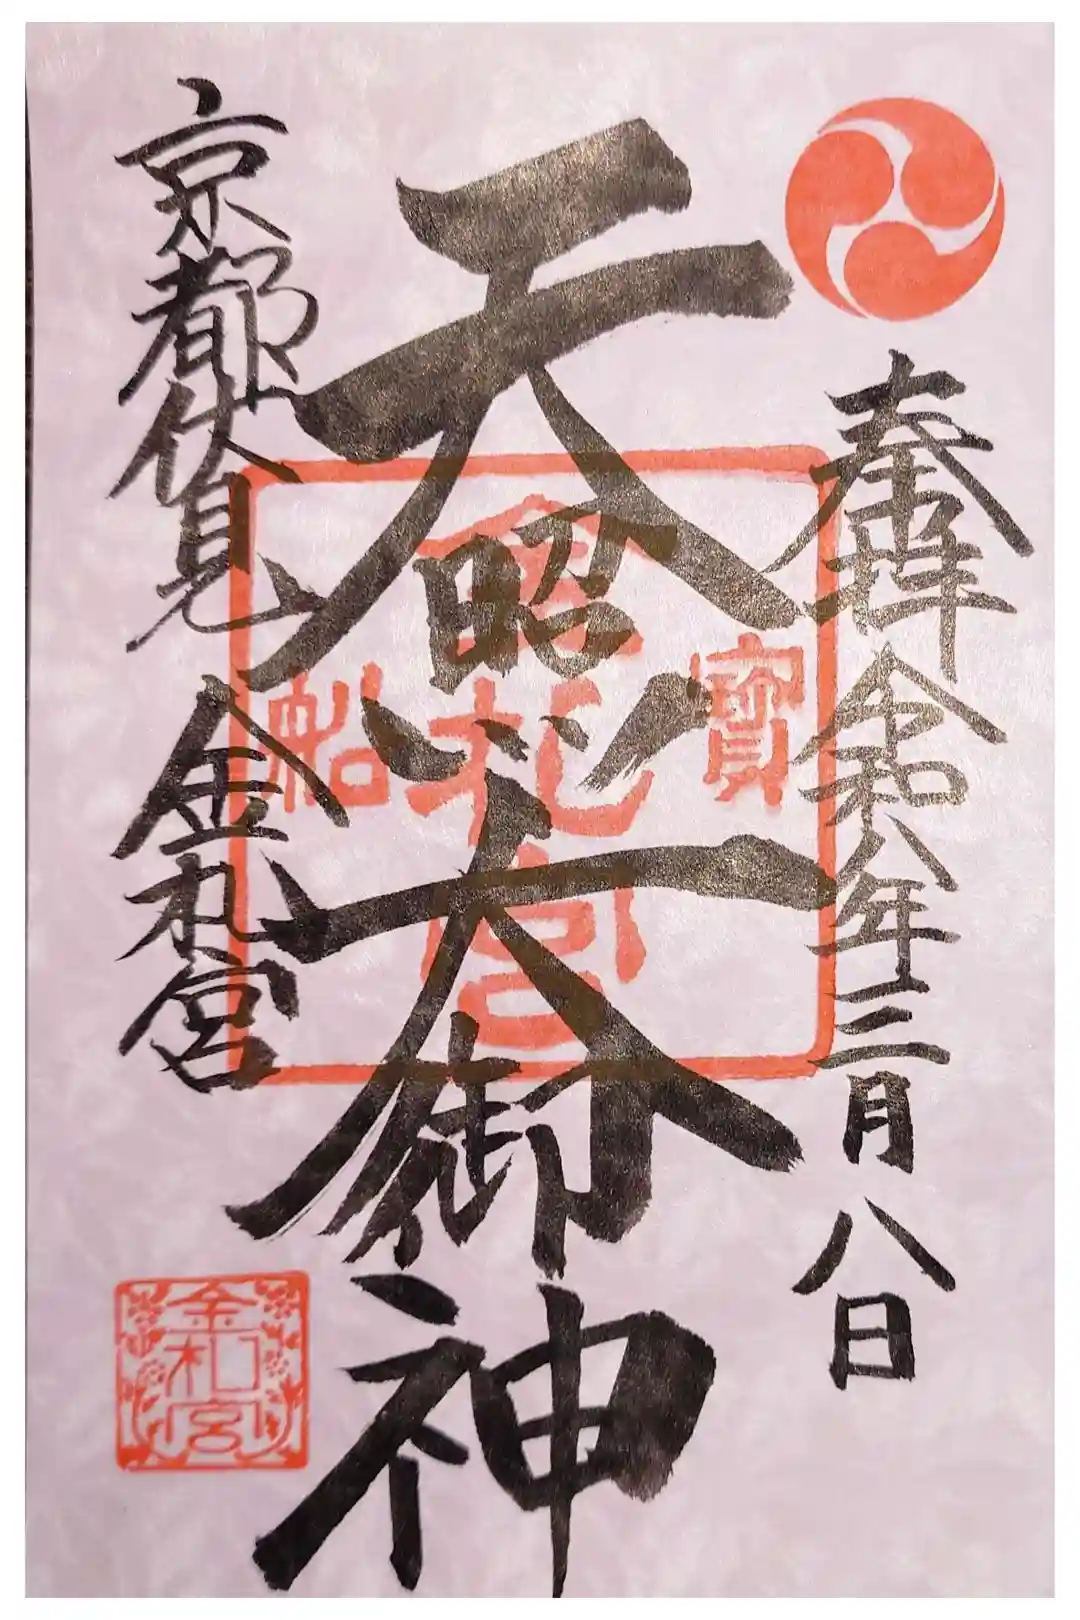 奉拝 令和八年三月八日
天照大御神
寶
金札宮
船
京都伏見 金札宮
金札宮